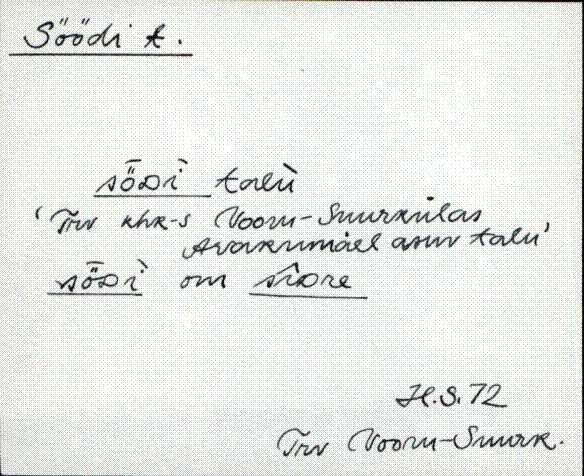 Söödi t.
sȫᴅì talù
'Trv khk-s Vooru-Suurkülas
Avakumäel asuv talu'
sȫᴅì om sîᴅre
H.S. 72
Trv Vooru-Suurk.